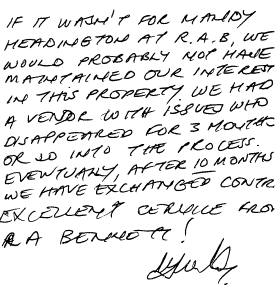 IF IT WASN'T FOR MANDY
HEADINGTON AT R.A.B, WE
WOULD PROBABLY NOT HAVE
MAINTAINED OUR INTEREST
IN THIS PROPERTY. WE HAD
A VENDOR WITH ISSUES WHO
DISAPPEARED FOR 3 MONTHS
OR SO INTO THE PROCESS.
EVENTUALLY, AFTER 10 MONTHS
WE HAVE EXCHANGED CONTR
EXCELLENT SERVICE FROM
R A BENNETT!